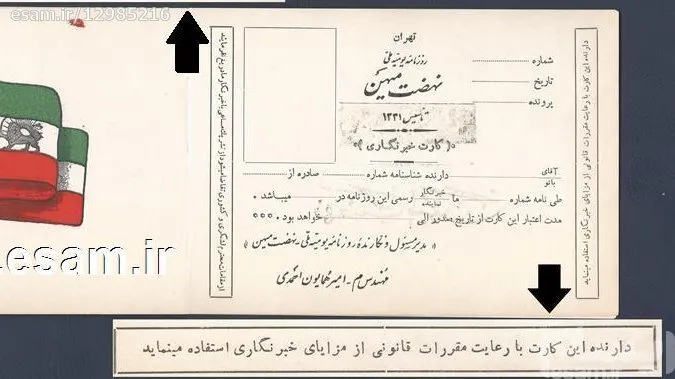 esam.ir/12985216
تهران
روزنامه یومیه ملی
نهضت میهن
تأسیس ۱۳۳۱
«( کارت خبرنگاری )»
شماره
تاریخ
پرونده
آقای
بانو
دارنده شناسنامه شماره صادره از
طی نامه شماره ما خبرنگار
نماینده
رسمی این روزنامه در میباشد .
مدت اعتبار این کارت از تاریخ صدور الی خواهد بود .
« مدیر مسئول و نگارنده روزنامه یومیه ملی - نهضت میهن »
مهندس م - امیر همایون احمدی
دارنده این کارت با رعایت مقررات قانونی از مزایای خبرنگاری استفاده مینماید
از مقامات محترم لشگری و کشوری تقاضا میشود از نشر
esam.ir
دارنده این کارت با رعایت مقررات قانونی از مزایای خبرنگاری استفاده مینماید